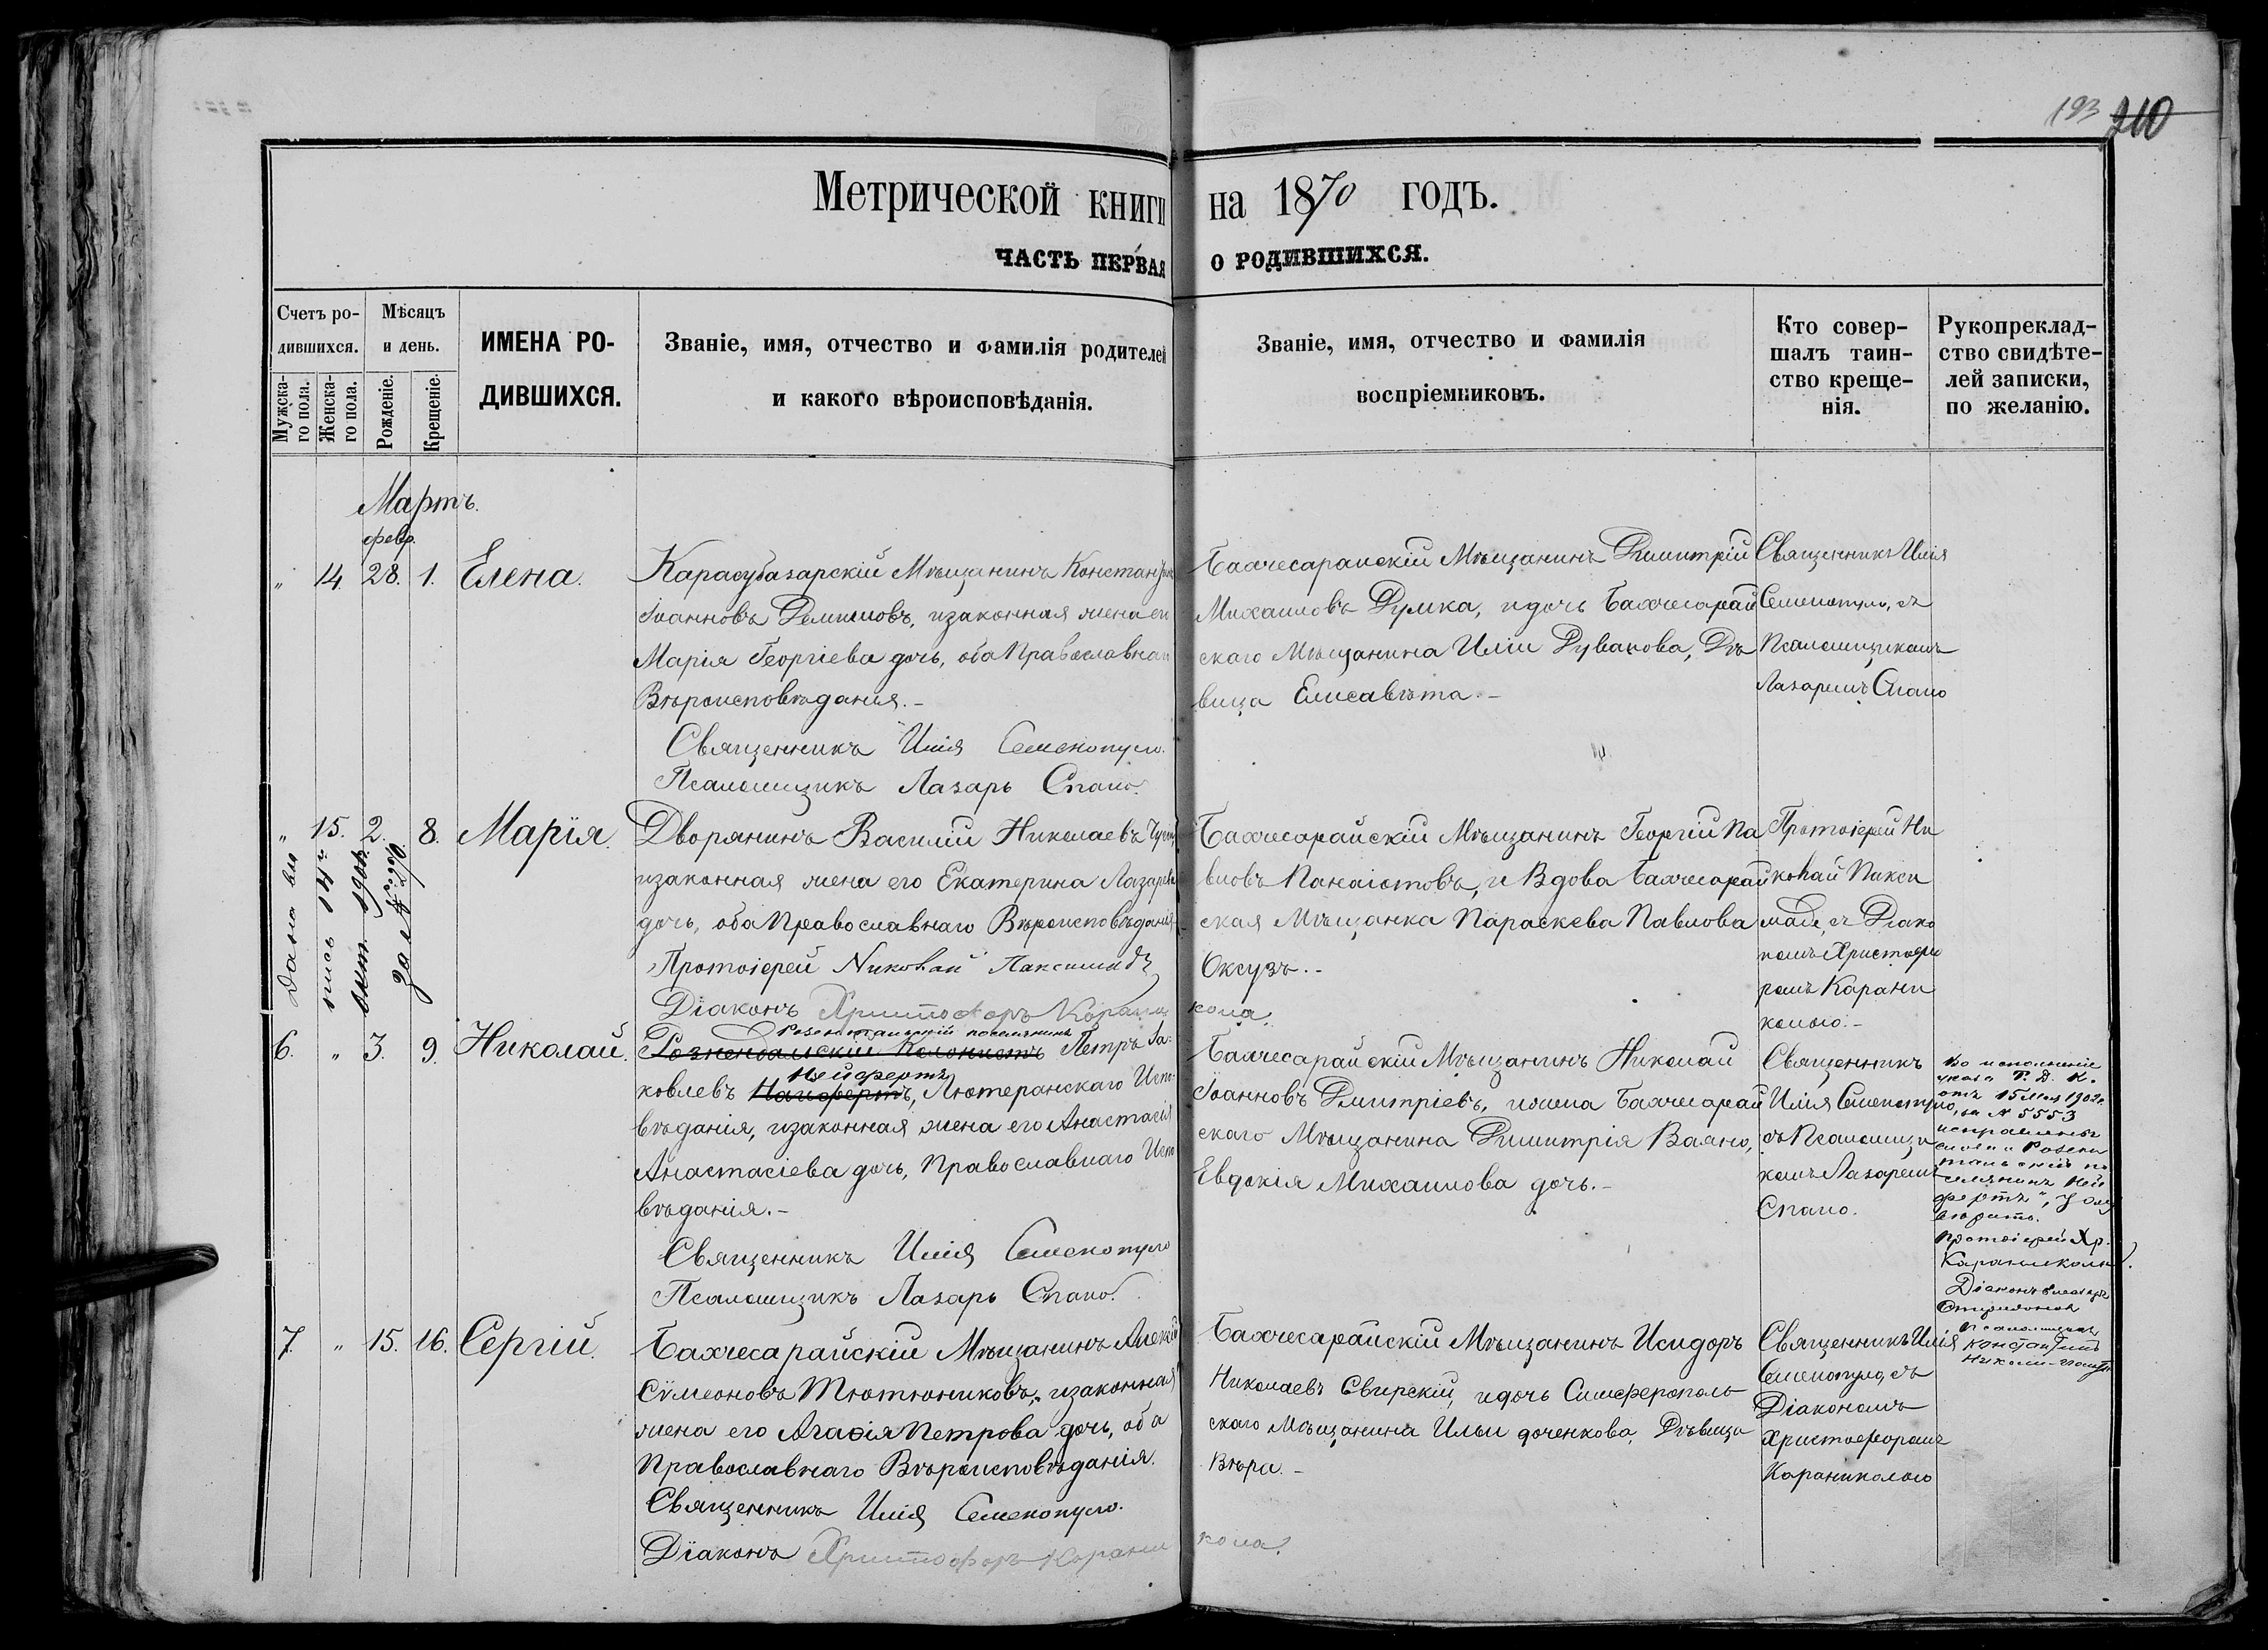 193 210
Метрической книги на 1870 годъ.
ЧАСТЬ ПЕРВАЯ О РОДИВШИХСЯ.
Счетъ ро-
дившихся.
Мужска-
го пола.
Женска-
го пола.
Мѣсяцъ
и день.
Рожденіе.
Крещеніе.
ИМЕНА РО-
ДИВШИХСЯ.
Званіе, имя, отчество и фамилія родителей
и какого вѣроисповѣданія.
Званіе, имя, отчество и фамилія
воспріемниковъ.
Кто совер-
шалъ таин-
ство креще-
нія.
Рукоприклад-
ство свидѣте-
лей записки,
по желанію.
Мартъ.
февр.
" 14. 28. 1. Елена.
Карасубазарскій Мѣщанинъ Константинъ
Іоанновъ Демишовъ, изаконная жена его
Марія Георгіева дочь, оба Православнаго
Вѣроисповѣданія.-
Священникъ Илія Семенопуло.
Псаломщикъ Лазарь Спано.
Бахчесарайскій Мѣщанинъ Димитрій
Михаиловъ Думка, идочь Бахчесарай
скаго Мѣщанина Иліи Дувакова, Дѣ
вица Елисавѣта.-
Священникъ Илія
Семенопуло, съ
Псаломщикомъ
Лазаремъ Спано
" 15. 2. 8. Марія.
Дана вы
пись 14го
окт. 1901.
за № 290.
Дворянинъ Василій Николаевъ
изаконная жена его Екатерина Лазарева
дочь, оба Православнаго Вѣроисповѣданія.
Протоіерей Николай Паксимадъ
Діаконъ Христофоръ Караникола.
Бахчесарайскій Мѣщанинъ Георгій Па
вловъ Панаіотовъ, и Вдова Бахчесарай
ская Мѣщанка Параскева Павлова
Оксузъ.-
Протоіерей Ни
колай Пакси
мадъ, съ Діако
номъ Христофо
ромъ Карани
колою.-
6. " 3. 9. Николай.
Розентальскій поселянинъ
Розенендальскій Колонистъ Петръ Іа-
Нейфертъ
ковлевъ Найфертъ, Лютеранскаго Испо-
вѣданія, изаконная жена его Анастасія
Анастасіева дочь, Православнаго Испо
вѣданія.-
Священникъ Илія Семенопуло
Псаломщикъ Лазарь Спано.
Бахчесарайскій Мѣщанинъ Николай
Іоанновъ Дмитріевъ, ижена Бахчесарай
скаго Мѣщанина Димитрія Ваяно,
Евдокія Михаилова дочь.-
Священникъ
Илія Семенопуло,
съ Псаломщи
комъ Лазаремъ
Спано.
Во исполненіе
указа Т. Д. К.
отъ 15 Мая 1902 г.
за № 5553
исправленнымъ
словамъ „Розен
тальскій по
селянинъ Ней
фертъ",
вѣрить.
Протоіерей Хр.
Караникола.
Діаконъ
Псаломщикъ
Константинъ
7. " 15. 16. Сергій.
Бахчесарайскій Мѣщанинъ Алексій
Сѵмеоновъ Тютюниковъ, изаконная
жена его Агаѳія Петрова дочь, оба
Православнаго Вѣроисповѣданія.
Священникъ Илія Семенопуло.
Діаконъ Христофоръ Караникола.
Бахчесарайскій Мѣщанинъ Исидоръ
Николаевъ Свирскій, идочь Симферополь
скаго Мѣщанина Ильи доченкова, Дѣвица
Вѣра.-
Священникъ Илія
Семенопуло, съ
Діакономъ
Христофоромъ
Караниколою